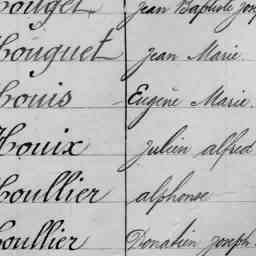 Houget Jean Baptiste Jos
Houguet Jean Marie.
Houis Eugène Marie.
Houix Julien alfred
Houllier alphonse
Houllier Donatien Joseph.